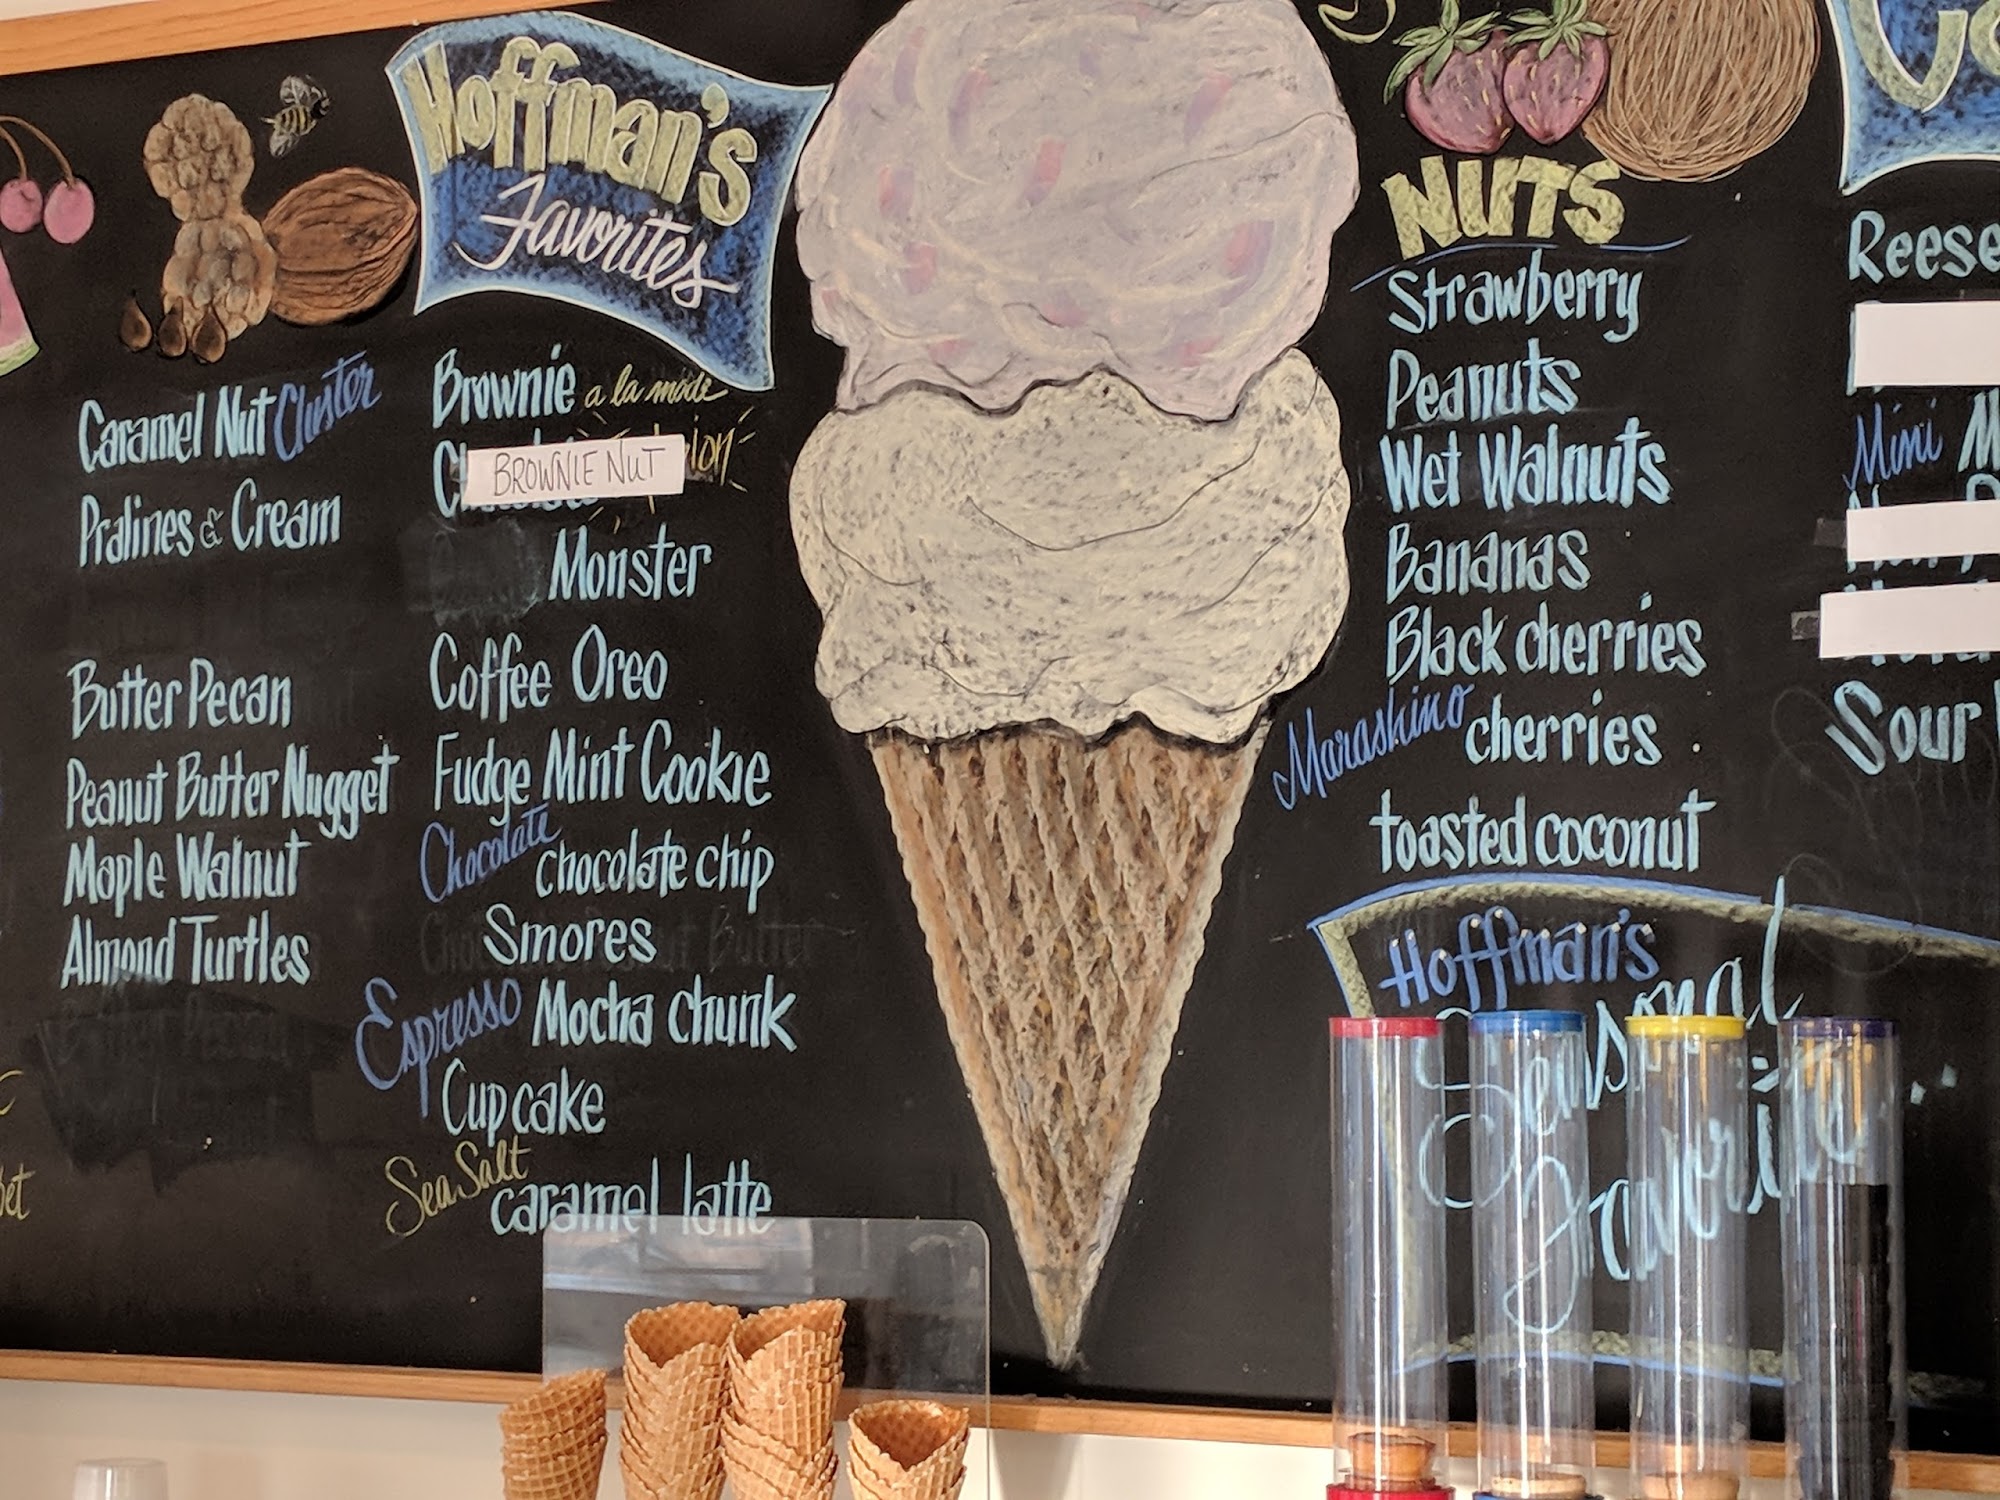 Caramel Nut Cluster
Pralines & Cream
Butter Pecan
Peanut Butter Nugget
Maple Walnut
Almond Turtles
Hoffman's
Favorites
Brownie a la mode
BROWNIE NUT
Monster
Coffee Oreo
Fudge Mint Cookie
Chocolate
chocolate chip
Smores
Espresso Mocha chunk
Cupcake
Sea Salt
caramel latte
NUTS
Strawberry
Peanuts
Wet Walnuts
Bananas
Black cherries
Marashino
cherries
toasted coconut
Hoffman's
Seasonal
Favorite...
Reese
Mini M
Sour